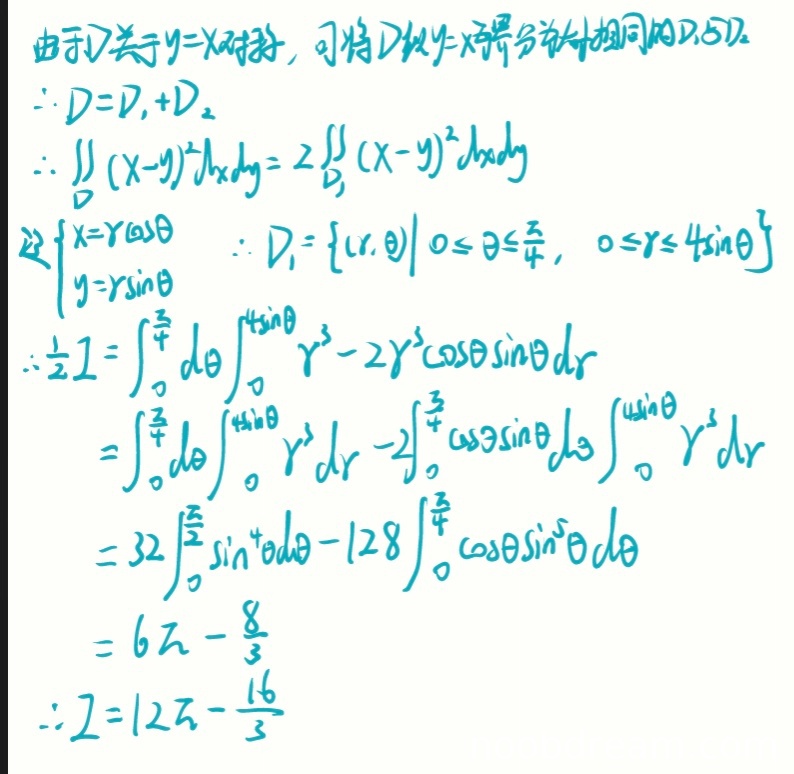 由于D关于y=x对称,可将D以y=x为界分为大小相同的D₁与D₂
∴ D=D₁+D₂
∴ ∬_D (x-y)²dxdy = 2∬_D₁ (x-y)²dxdy
设 { x=rcosθ y=rsinθ ∴ D₁={(r,θ)| 0≤θ≤π/4, 0≤r≤4sinθ}
∴ 1/2 I = ∫₀^(π/4) dθ ∫₀^(4sinθ) r³-2r³cosθsinθdr
= ∫₀^(π/4) dθ ∫₀^(4sinθ) r³dr - 2∫₀^(π/4) cosθsinθdθ ∫₀^(4sinθ) r³dr
= 32∫₀^(π/2) sin⁴θdθ - 128∫₀^(π/4) cosθsin⁵θdθ
= 6π - 8/3
∴ I = 12π - 16/3